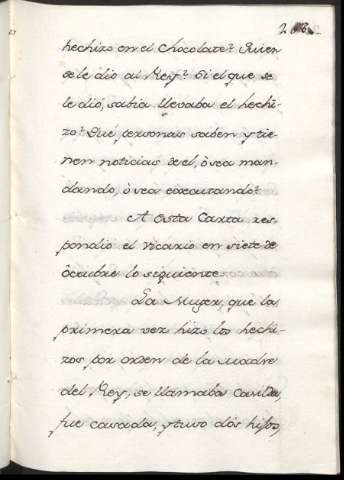 hechizo en el Chocolate? Quien
se le dio al Rey? Si el que se
le dió, sabia llevaba el hechi-
zo? Qué personas saben y tie-
nen noticias de el, ò sea man-
dando, ò sea executando?
A esta Carta res-
pondio el Vicario en siete de
Octubre lo siguiente.
La Muger, que la
primera vez hizo los hechi-
zos por orden de la Madre
del Rey, se llamaba Casilda,
fue casada, y tuvo dos hijos,